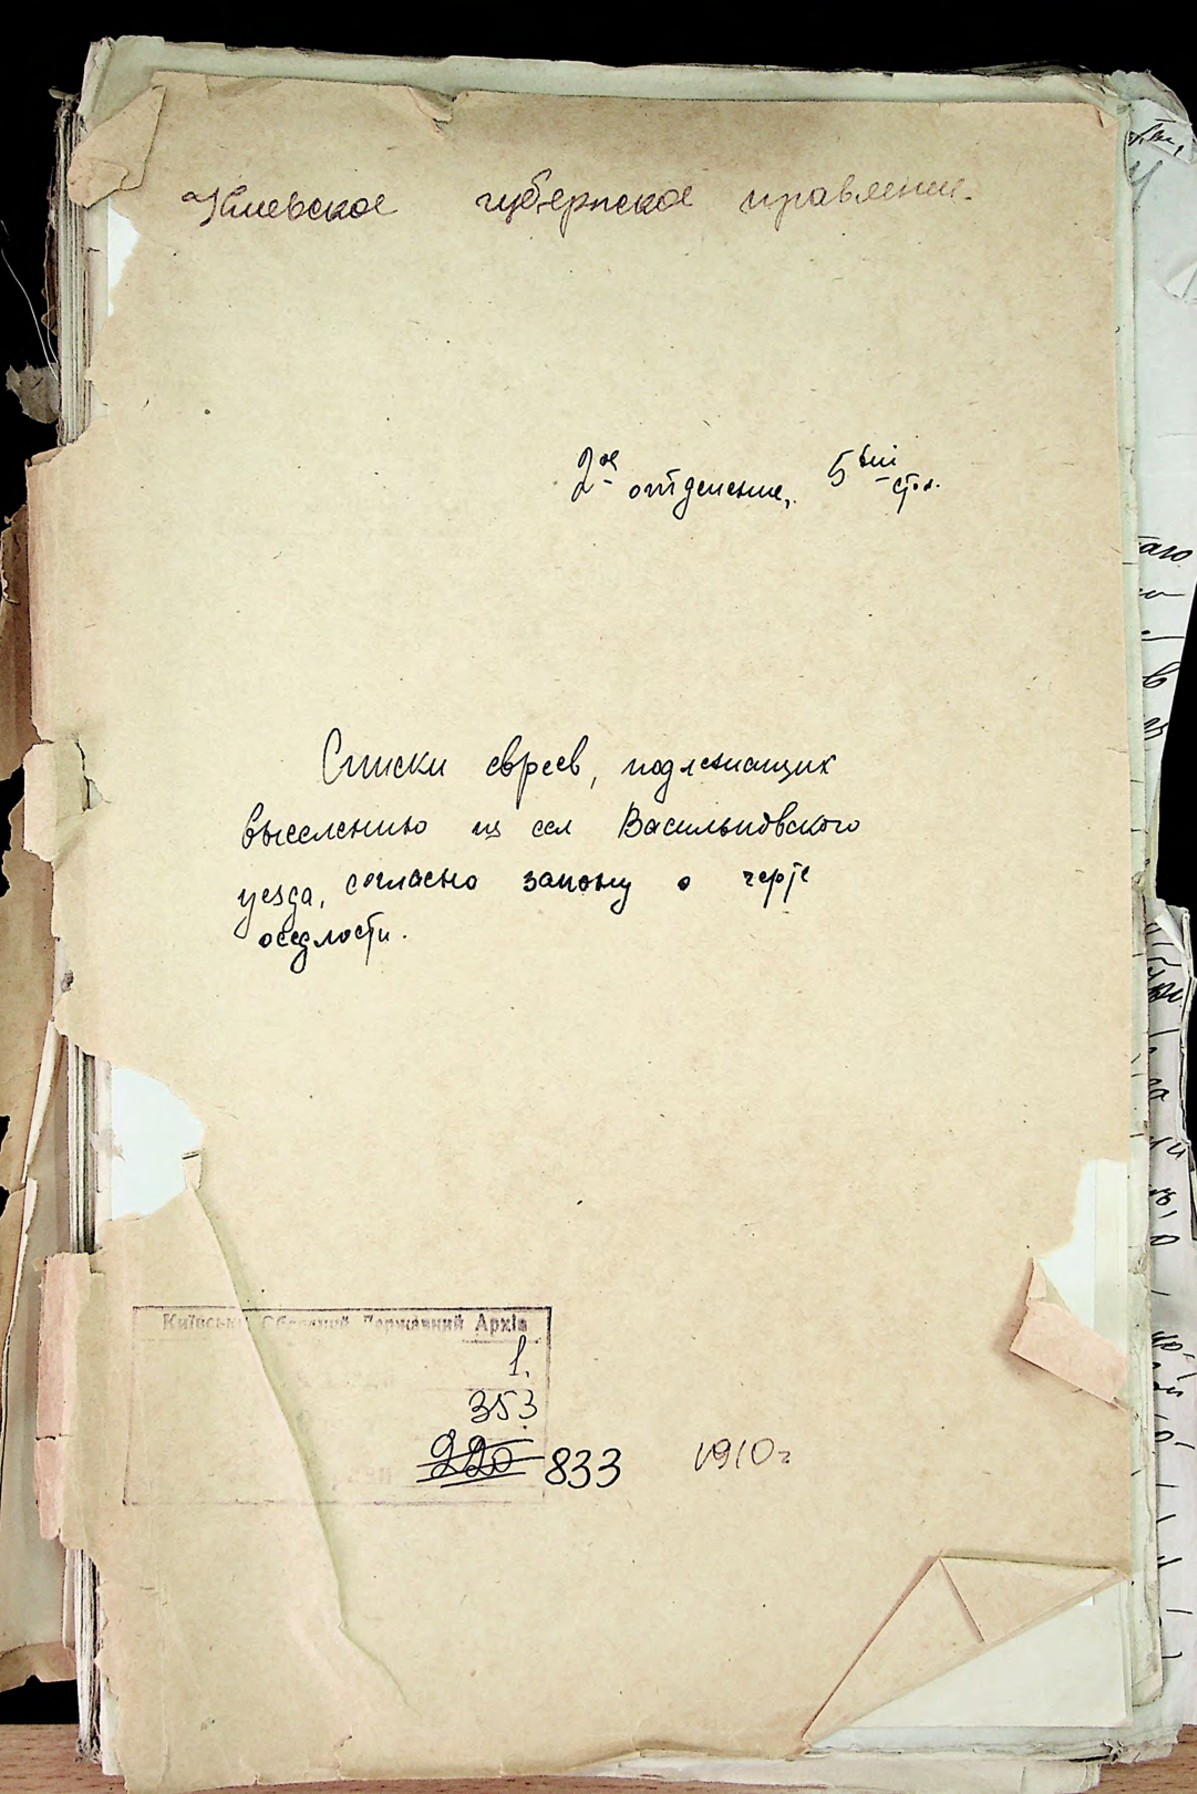 Киевское губернское правление.
2ое отделение, 5ый стол.
Списки евреев, подлежащих
выселению из сел Васильковского
уезда, согласно закону о черте
оседлости.
Київський Обласний Державний Архів
1.
353
220 833 1910 г